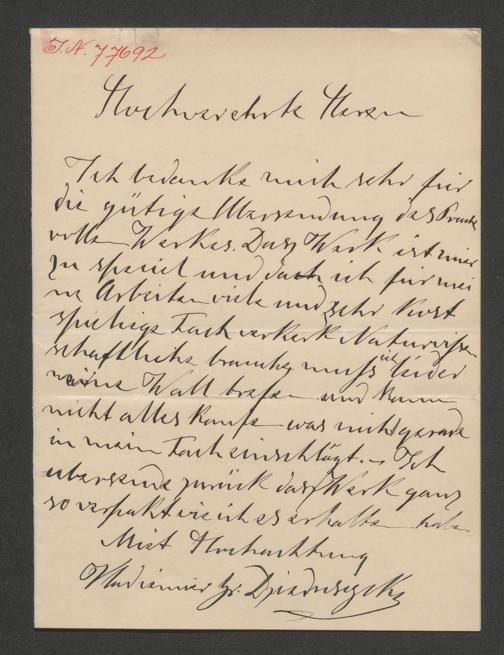 I.N. 77692
Hochverehrte Herren
Ich bedanke mich sehr für
die gütige Übersendung des Pracht
vollen Werkes. Das Werk ist mir
zu speciel und da ich für mei
ne Arbeiten viele und sehr Kost
spielige Fachwerke Naturwissen
schaftliche brauche, muss ich leider
meine Wall trefen und kann
nicht alles kaufen was nicht gerade
in mein Fach einschlägt. – Ich
übersende zurück das Werk ganz
so verpakt wie ich es erhalten habe
Mit Hochachtung
Wladimir Gr. Dzieduszycki